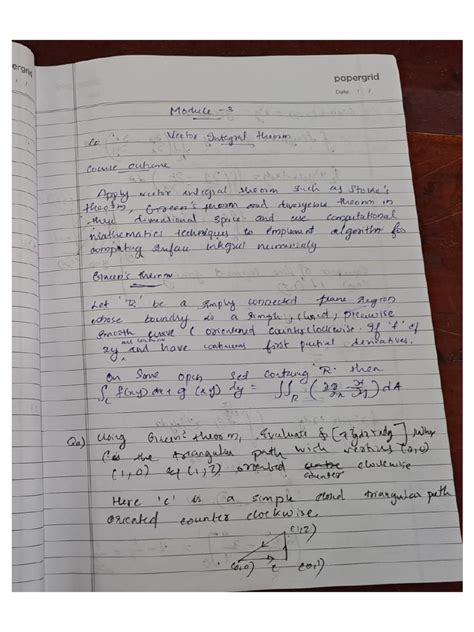 papergrid
Date: / /
ergrid
Module - 3
Co Vector Integral theorm
Course outcome
Apply vector integral theorm such as Stoke's
theorm, Green's theorm and divergence theorm in
three dimensional space and use computational
mathematics techniques to implement algorithm for
computing surface integral numericaly
Green's theorm
Let 'R' be a simply connected plane region
whose boundry is a simple, closed, piecewise
smooth curve C orientered counterclockwise. If 'f' of
xy and have continuous first partial derivatives.
On some open sed R. then
∫c f(xy) dx + g (xy) dy = ∬R (∂g/∂x - ∂f/∂y) dA
Qa) Using Green's theorm, Evaluate
C is the triangular path with vertices (0,0)
(1,0) & (1,2) oriented counter clockwise
Here 'c' is a simple closed triangular path
oriented counter clockwise.
(1,2)
(0,0) c (0,1)